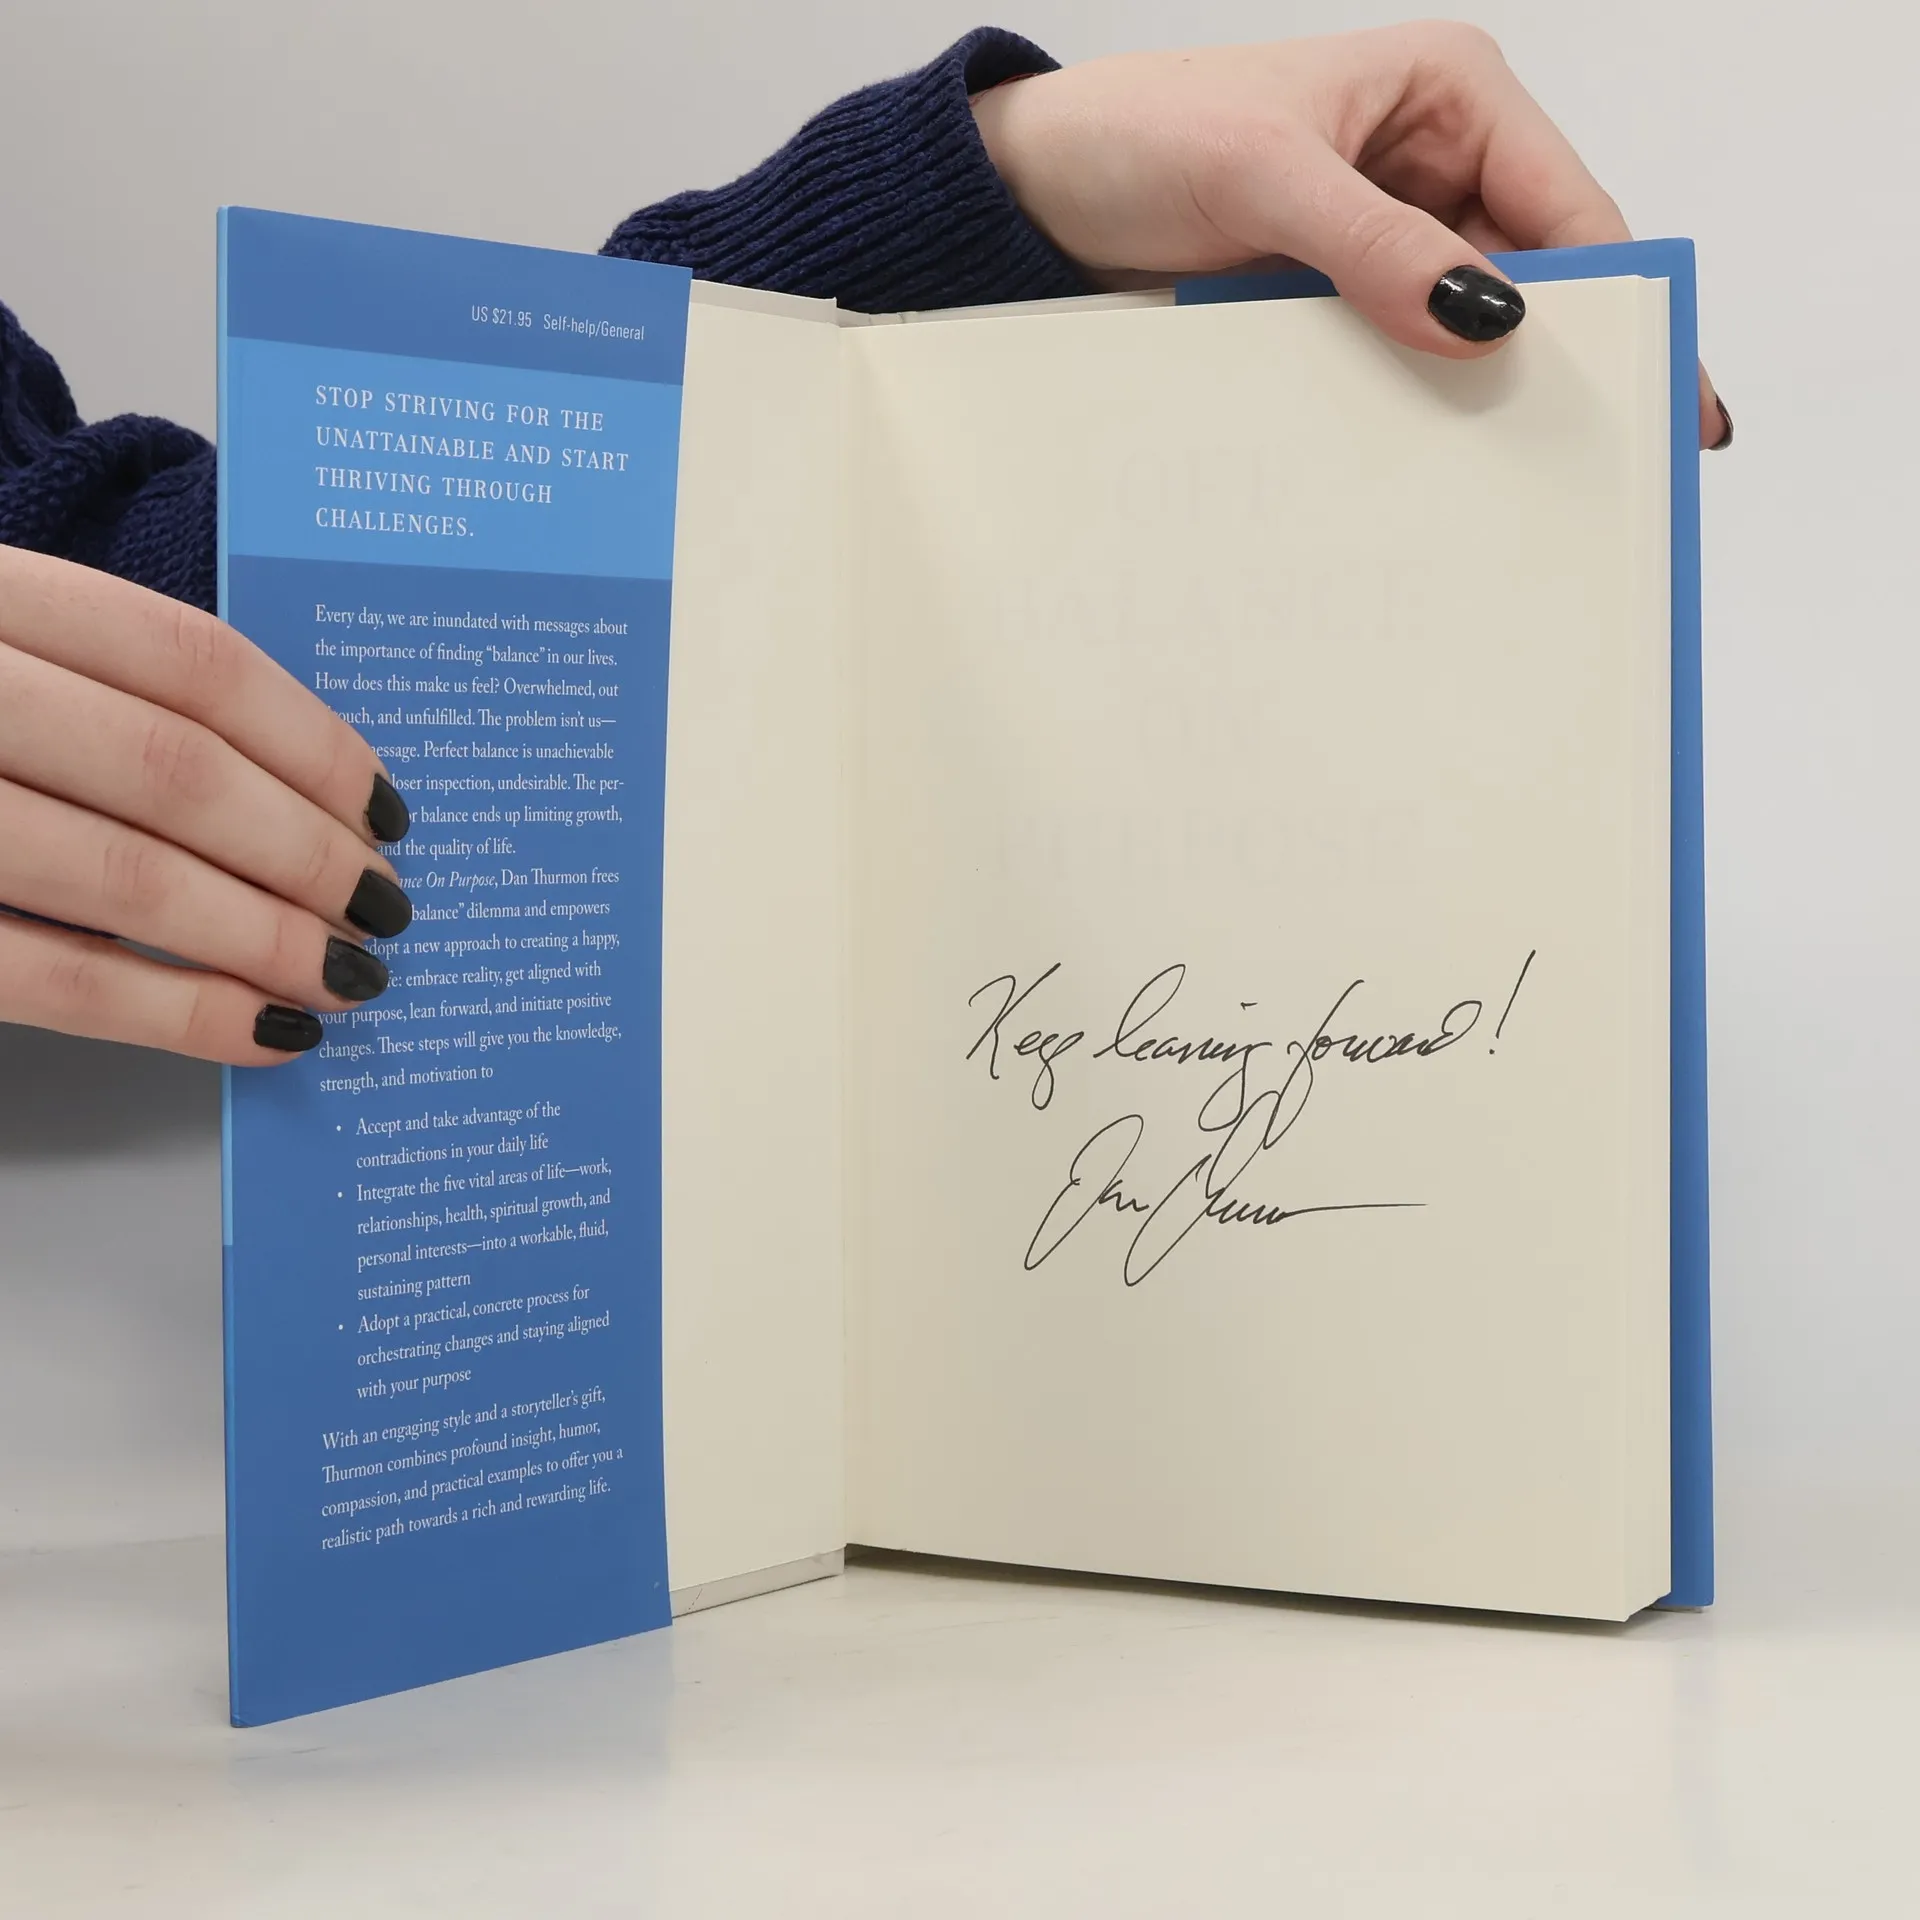 US $21.95 Self-help/General
STOP STRIVING FOR THE
UNATTAINABLE AND START
THRIVING THROUGH
CHALLENGES.
Every day, we are inundated with messages about
the importance of finding “balance” in our lives.
How does this make us feel? Overwhelmed, out
ouch, and unfulfilled. The problem isn’t us—
essage. Perfect balance is unachievable
loser inspection, undesirable. The per-
r balance ends up limiting growth,
and the quality of life.
ance On Purpose, Dan Thurmon frees
balance” dilemma and empowers
adopt a new approach to creating a happy,
fe: embrace reality, get aligned with
your purpose, lean forward, and initiate positive
changes. These steps will give you the knowledge,
strength, and motivation to
• Accept and take advantage of the
contradictions in your daily life
• Integrate the five vital areas of life—work,
relationships, health, spiritual growth, and
personal interests—into a workable, fluid,
sustaining pattern
• Adopt a practical, concrete process for
orchestrating changes and staying aligned
with your purpose
With an engaging style and a storyteller’s gift,
Thurmon combines profound insight, humor,
compassion, and practical examples to offer you a
realistic path towards a rich and rewarding life.
Keep leaning forward!
Dan Thurmon